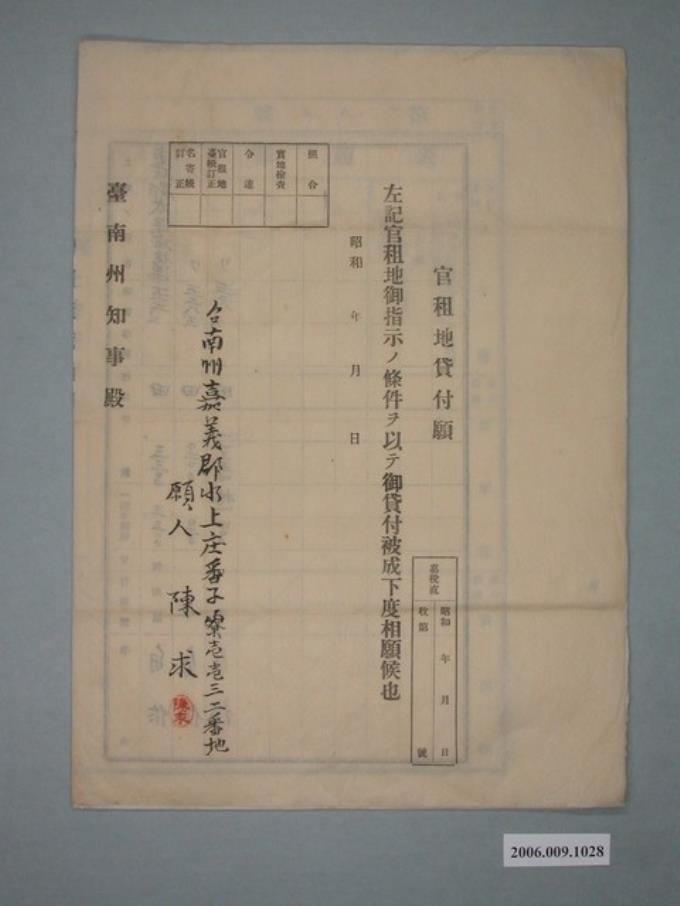 官租地貸付願
嘉稅直
昭和 年 月 日
收第 號
左記官租地御指示ノ條件ヲ以テ御貸付被成下度相願候也
昭和 年 月 日
照合
實地檢查
令達
官租地臺帳訂正
名寄帳訂正
台南州嘉義郡水上庄番子寮壱壱三二番地
願人 陳求
陳求
臺南州知事殿
2006.009.1028